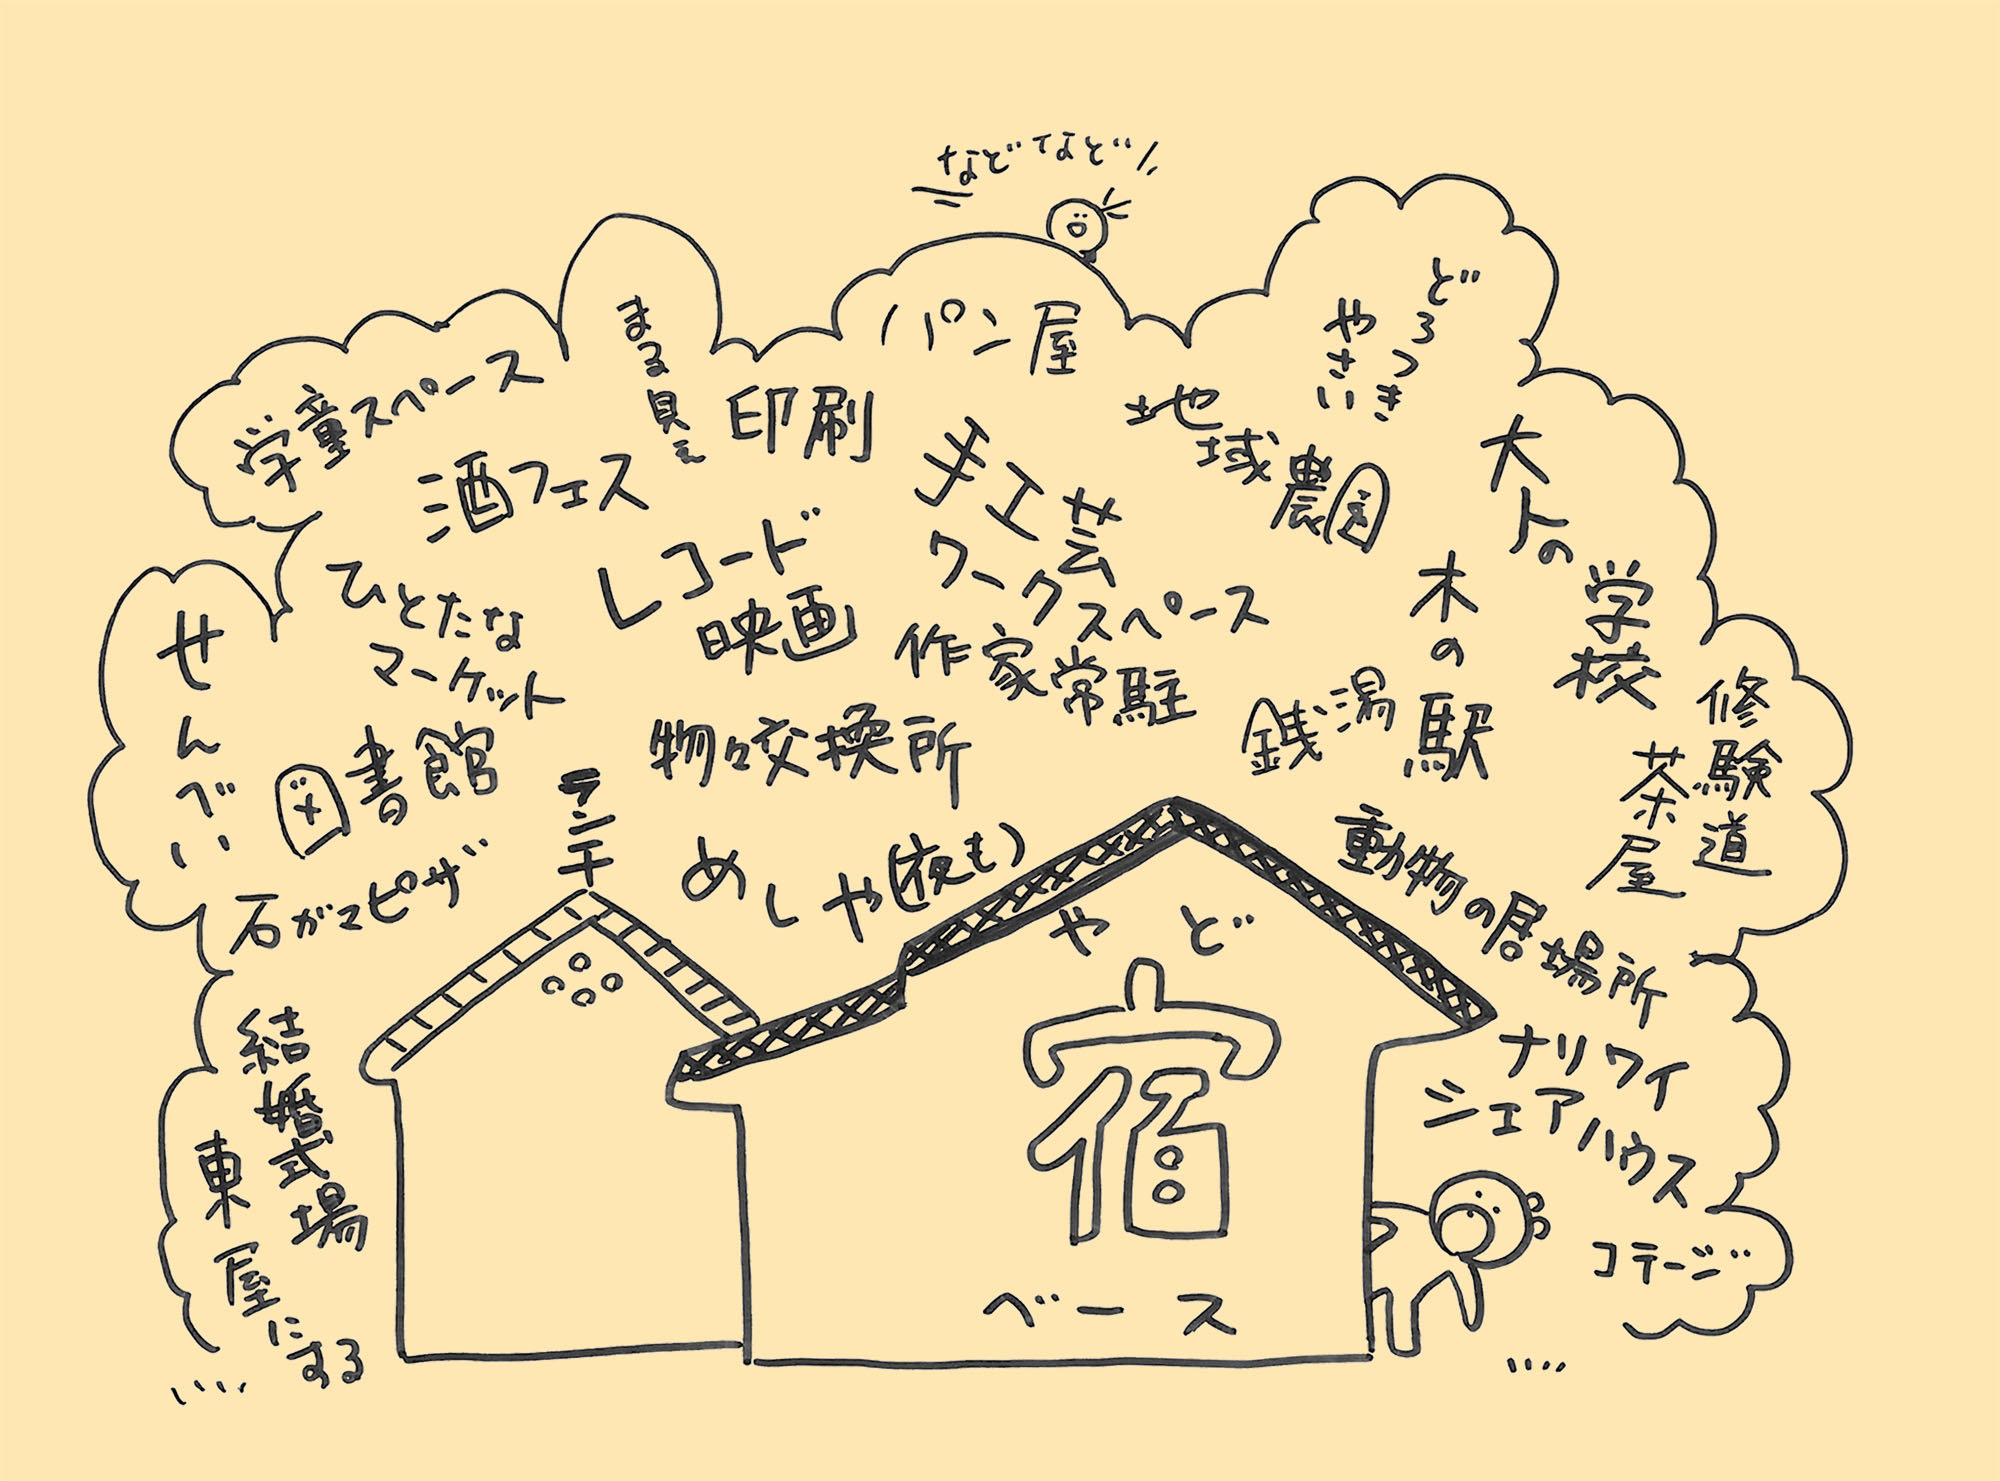 などなど
パン屋
どろつき
やさい
まる見え
印刷
学童スペース
酒フェス
手工芸
ワークスペース
地域農園
大人の
学校
レコード
映画
作家常駐
木の駅
ひとたな
マーケット
せんべい
物々交換所
銭湯
修験道
茶屋
図書館
ランチ
石ガマピザ
めしや(夜も)
動物の居場所
やど
宿
ベース
結婚式場
東屋にする
ナリワイ
シェアハウス
コテージ